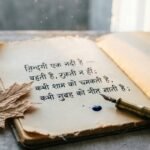 ज़िन्दगी एक नदी है –
बहती है, रुकती न हीं;
कभी शाम को चमकती है;
कभी सुबह को गीत गाती है।